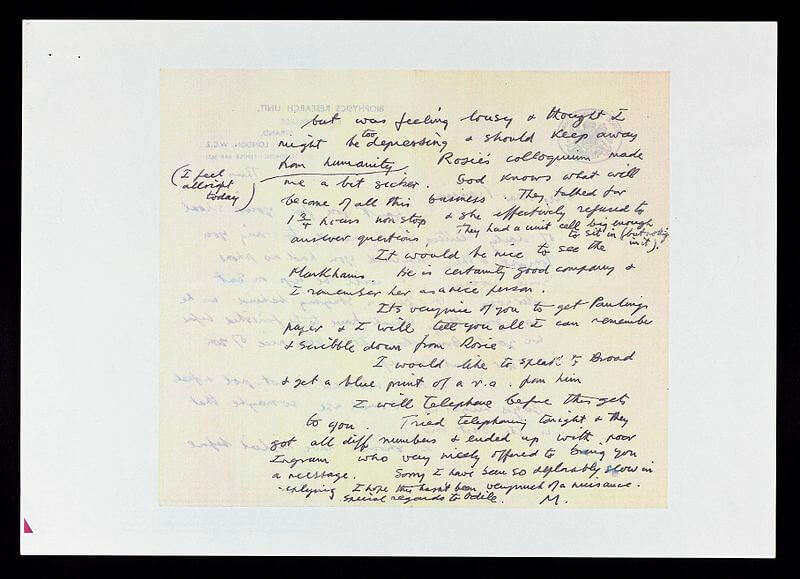 but was feeling lousy & thought I
might be too depressing & should keep away
from humanity. Rosie's colloquium made
(I feel
allright
today)
me a bit sicker. God knows what will
become of all this business. They talked for
1 3/4 hours non stop & she effectively refused to
answer questions They had a unit cell big enough
to sit in (but nothing
in it).
It would be nice to see the
Markhams. He is certainly good company &
I remember her as a nice person.
Its very nice of you to get Paulings
paper & I will tell you all I can remember
& scribble down from Rosie
I would like to speak to Broad
& get a blue print of a r.a. from him
I will telephone before this gets
to you. Tried telephoning tonight & they
got all diff numbers & ended up with poor
Ingram who very nicely offered to bring you
a message. Sorry I have been so deplorably slow in
replying I hope this hasn't been very much of a nuisance.
special regards to Odile. M.
BIOPHYSICS RESEARCH UNIT,
STRAND,
LONDON, W.C.2.